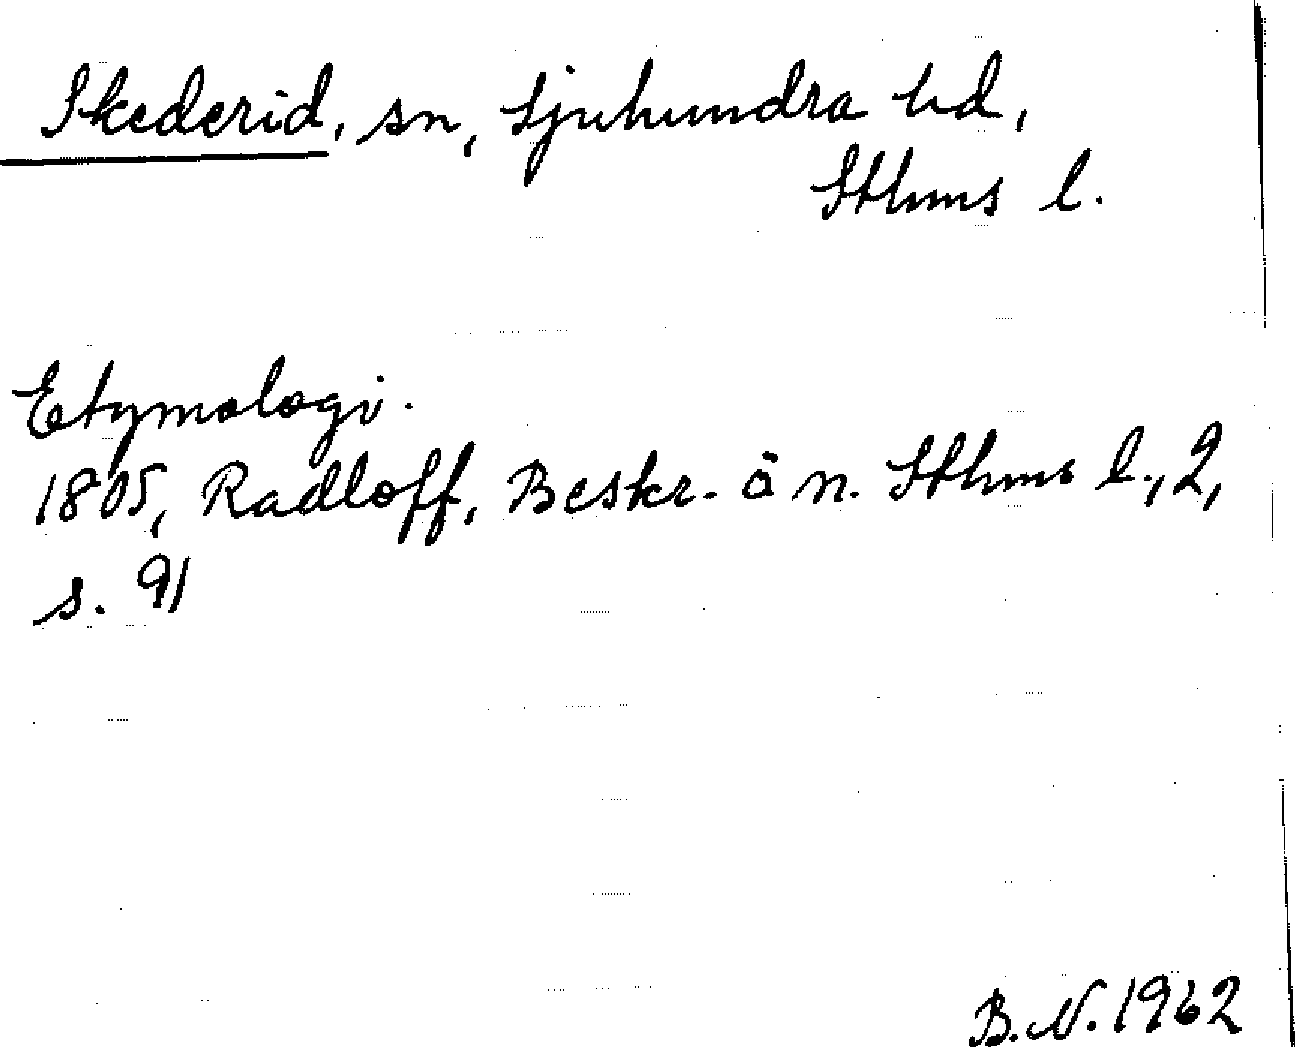 Skederid, sn, Sjuhundra hd,
Sthms l.
Etymologi.
1805, Radloff, Beskr. ö n. Sthms l., 2,
s. 91
B.N. 1962